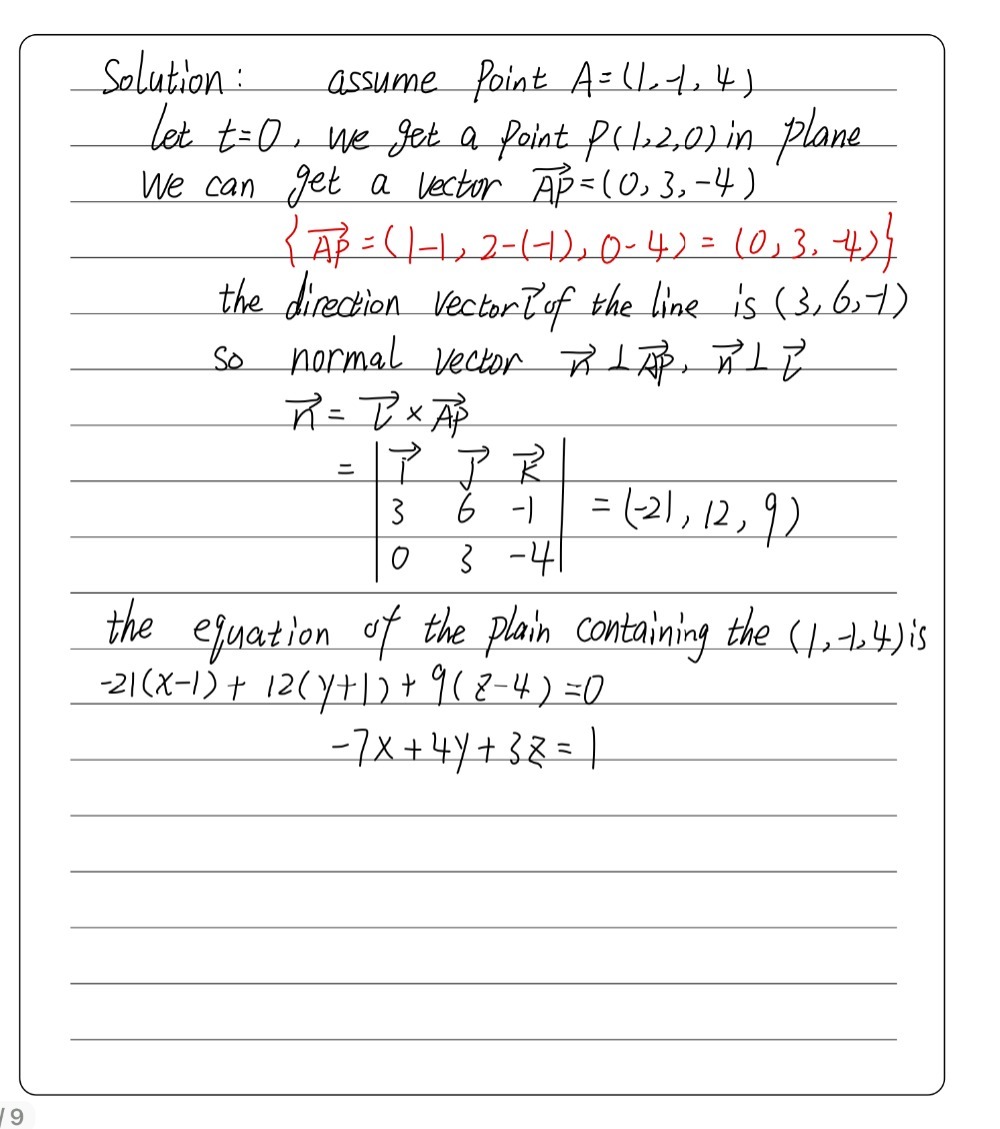 Solution: assume Point A=(1,-1,4)
let t=0, we get a point P(1,2,0) in plane
We can get a vector \overrightarrow{AP}=(0,3,-4)
{\overrightarrow{AP}=(1-1, 2-(-1), 0-4) = (0,3,-4)}
the direction vector \vec{l} of the line is (3,6,-1)
so normal vector \vec{n}⊥\overrightarrow{AP}, \vec{n}⊥\vec{l}
\vec{n} = \vec{l}×\overrightarrow{AP}
= | \vec{i} \vec{j} \vec{k} |
| 3 6 -1 | = (-21, 12, 9)
| 0 3 -4 |
the equation of the plain containing the (1,-1,4) is
-21(x-1) + 12(y+1) + 9(z-4) = 0
-7x + 4y + 3z = 1
/9